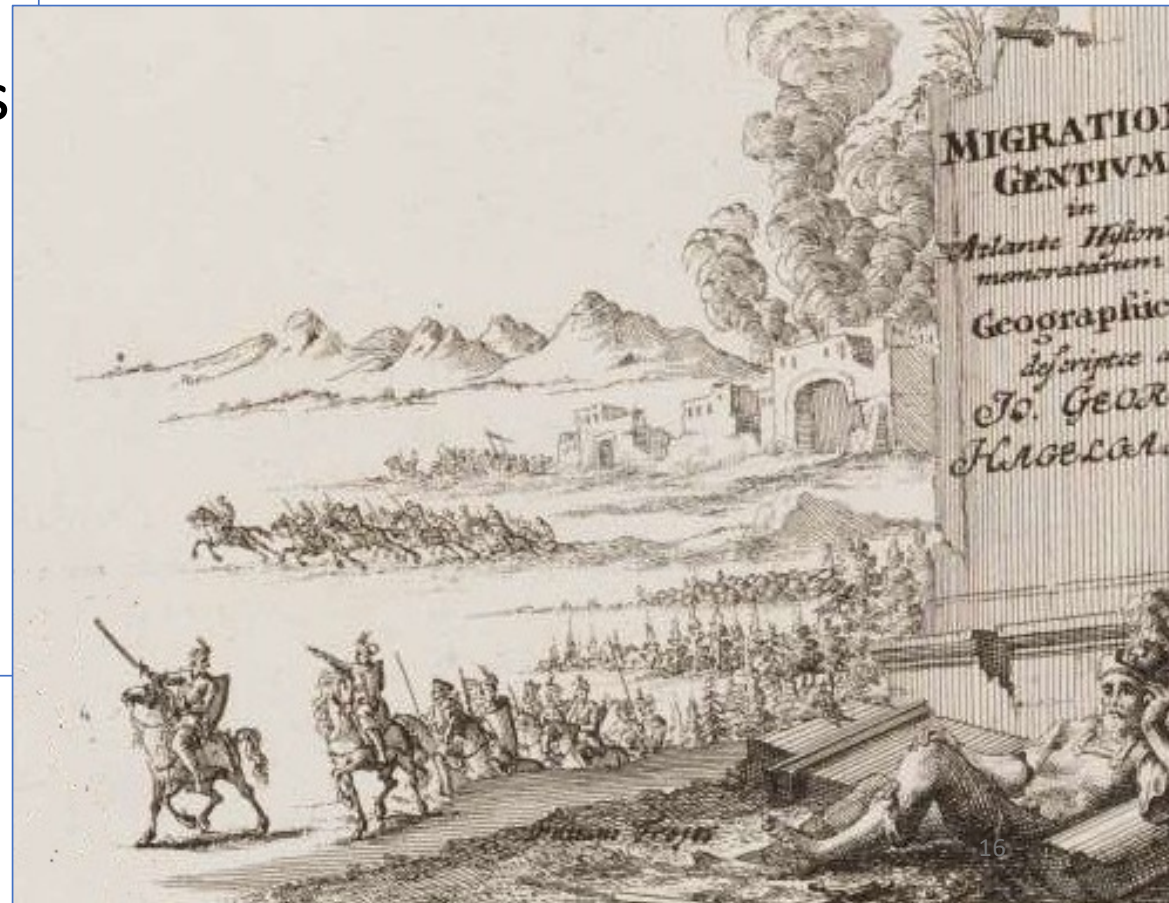 s
MIGRATIO
GENTIVM
in
Atlante Hystori
memoratarum
Geographic
descriptæ a
Jo. GEOR
HAGELGA
16